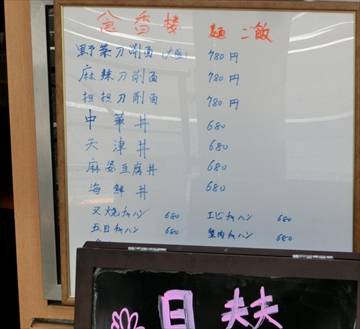 金香楼 麺 ご飯
野菜刀削面 780円
麻辣刀削面 780円
担担刀削面 780円
中華丼 680
天津丼 680
麻婆豆腐丼 680
海鮮丼 680
叉焼チャーハン 680 エビチャーハン 680
五目チャーハン 680 蟹肉チャーハン 680
日 夫夫